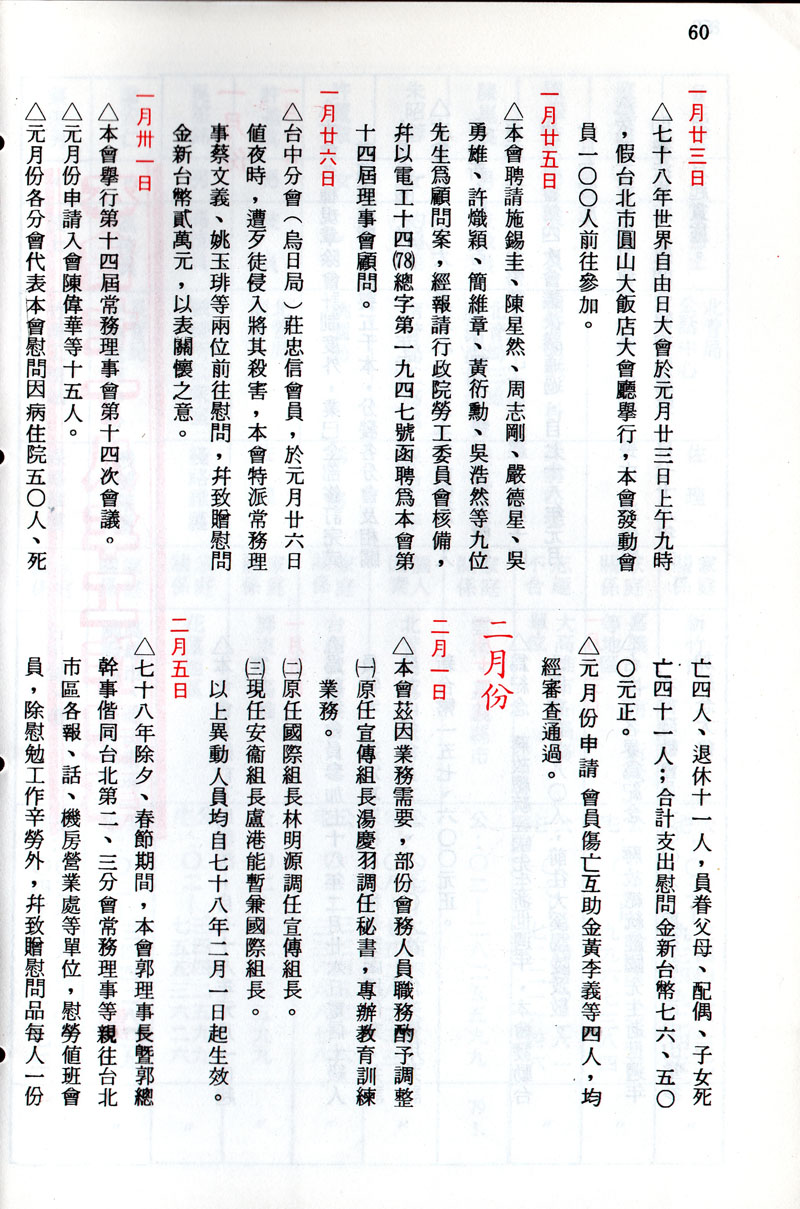 60
一月廿三日
△七十八年世界自由日大會於元月廿三日上午九時
，假台北市圓山大飯店大會廳舉行，本會發動會
員一〇〇人前往參加。
一月廿五日
△本會聘請施錫圭、陳星然、周志剛、嚴德星、吳
勇雄、許熾穎、簡維章、黃衍勳、吳浩然等九位
先生爲顧問案，經報請行政院勞工委員會核備，
幷以電工十四(78)總字第一九四七號函聘爲本會第
十四屆理事會顧問。
一月廿六日
△台中分會（烏日局）莊忠信會員，於元月廿六日
値夜時，遭歹徒侵入將其殺害，本會特派常務理
事蔡文義、姚玉琲等兩位前往慰問，幷致贈慰問
金新台幣貳萬元，以表關懷之意。
一月卅一日
△本會舉行第十四屆常務理事會第十四次會議。
△元月份申請入會陳偉華等十五人。
△元月份各分會代表本會慰問因病住院五〇人、死
亡四人、退休十一人，員眷父母、配偶、子女死
亡四十一人；合計支出慰問金新台幣七六、五〇
〇元正。
△元月份申請 會員傷亡互助金黃李義等四人，均
經審查通過。
二月份
二月一日
△本會茲因業務需要，部份會務人員職務酌予調整
㈠原任宣傳組長湯慶羽調任秘書，專辦教育訓練
業務。
㈡原任國際組長林明源調任宣傳組長。
㈢現任安衞組長盧港能暫兼國際組長。
以上異動人員均自七十八年二月一日起生效。
二月五日
△七十八年除夕、春節期間，本會郭理事長曁郭總
幹事偕同台北第二、三分會常務理事等親往台北
市區各報、話、機房營業處等單位，慰勞値班會
員，除慰勉工作辛勞外，幷致贈慰問品每人一份